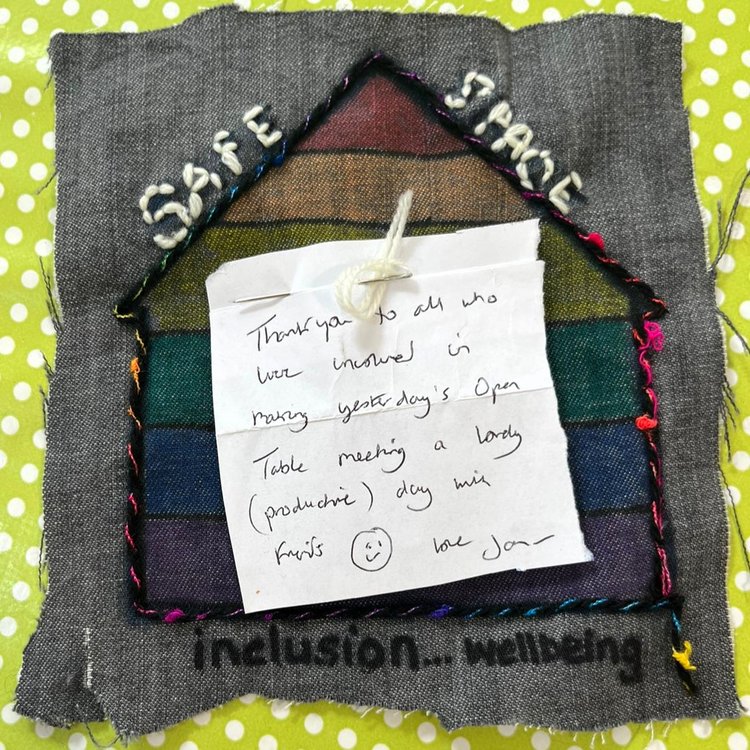 SAFE SPACE
Thankyou to all who
were involved in
making yesterday's Open
Table meeting a lovely
(productive) day with
friends love
inclusion... wellbeing